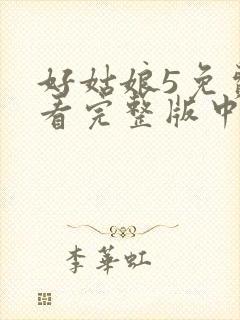 好姑娘5免费
看完整版中
李華虹